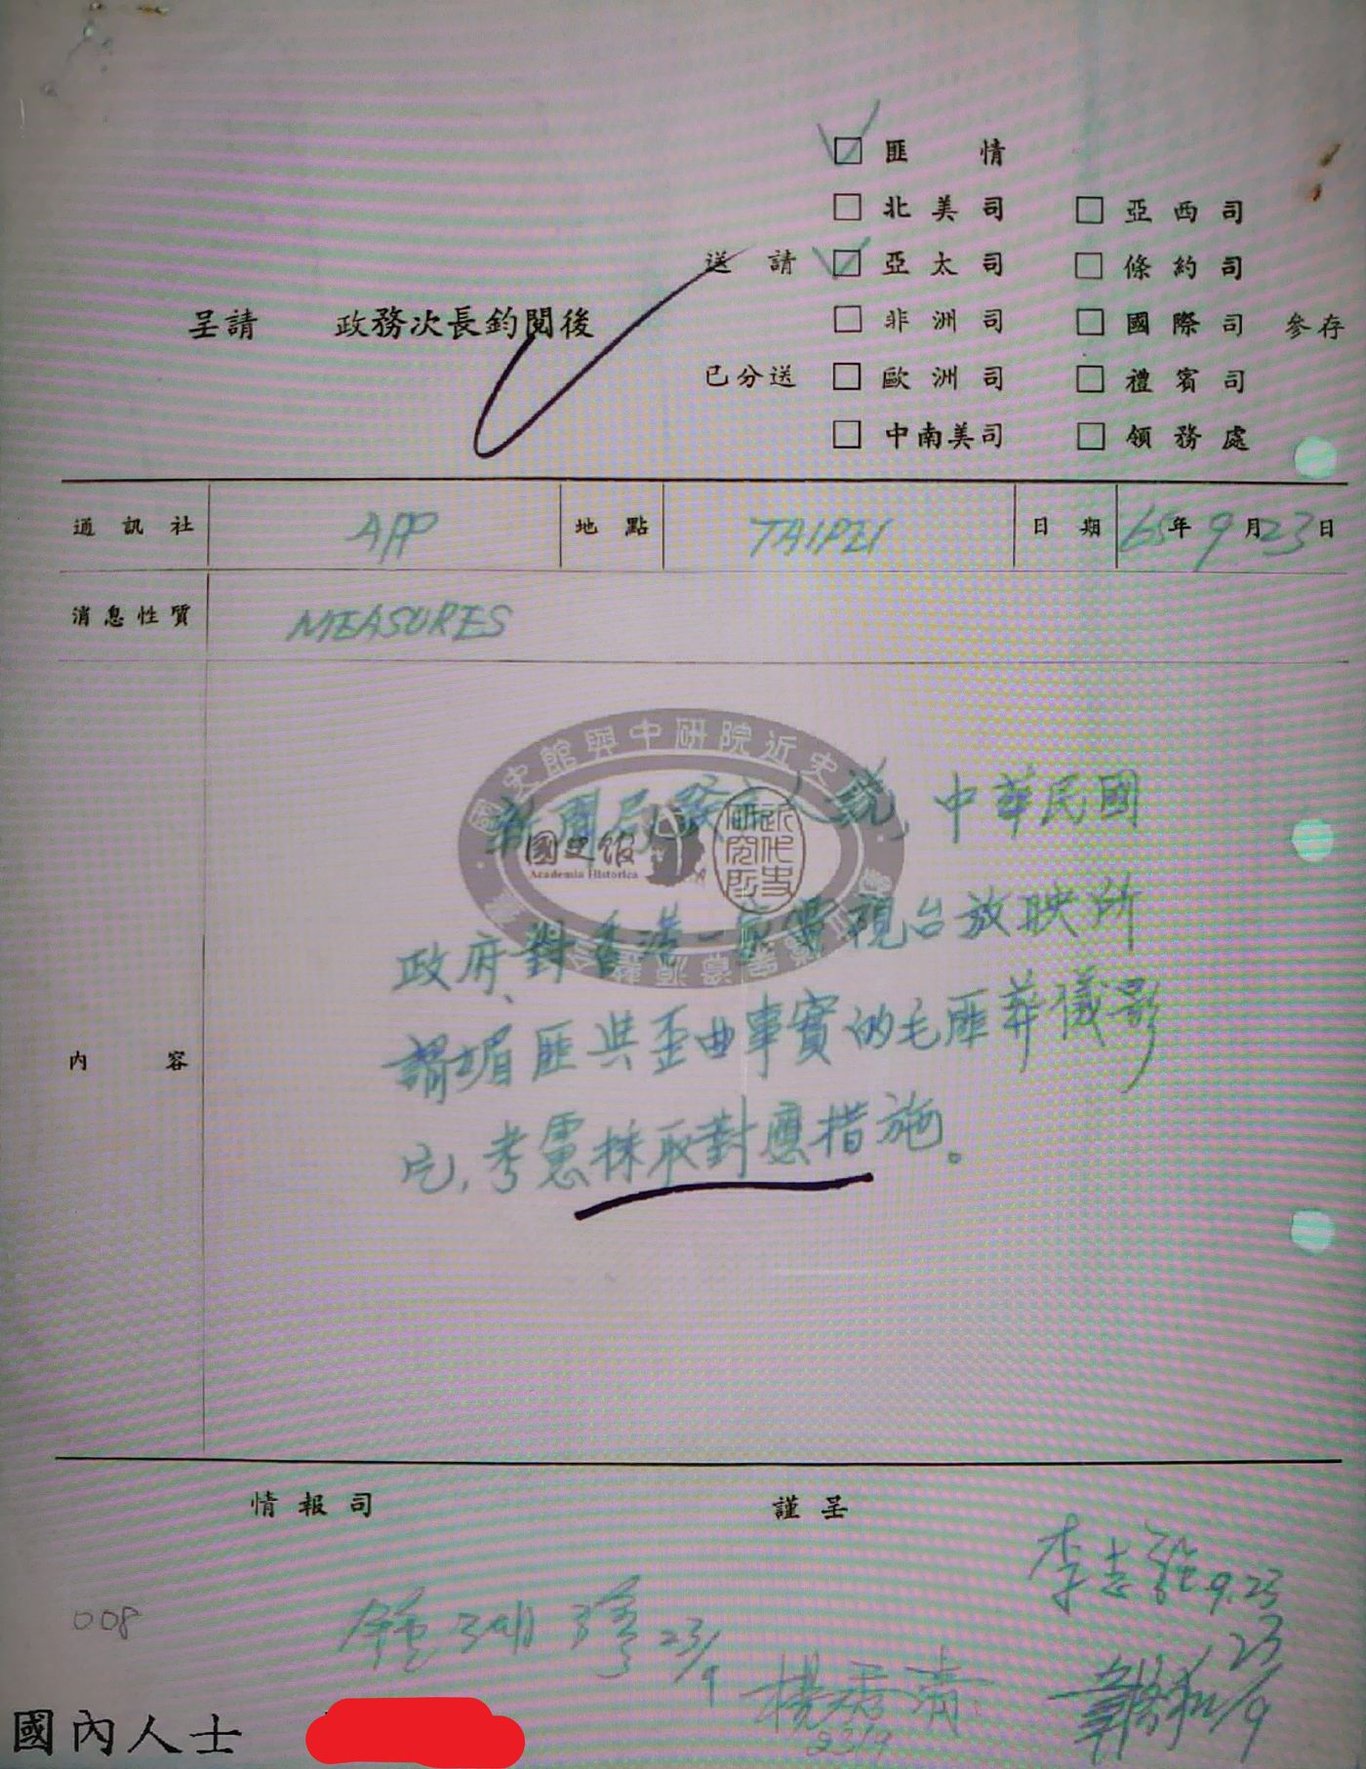 ☑ 匪情
☐ 北美司 ☐ 亞西司
送請 ☑ 亞太司 ☐ 條約司
呈請 政務次長鈞閱後 ☐ 非洲司 ☐ 國際司 參存
已分送 ☐ 歐洲司 ☐ 禮賓司
☐ 中南美司 ☐ 領務處
通訊社 AFP 地點 TAIPEI 日期 65年9月23日
消息性質 MEASURES
國史館與中研院近史
新聞局發言人說,中華民國
國史館
Academia Historica
近代史研究所
內容
政府對香港一家電視台放映所
謂媚匪與歪曲事實的毛匪葬儀影
片,考慮採取對應措施。
情報司 謹呈
李志 9.23
008
23/9
楊 清
23/9
23/9
國內人士